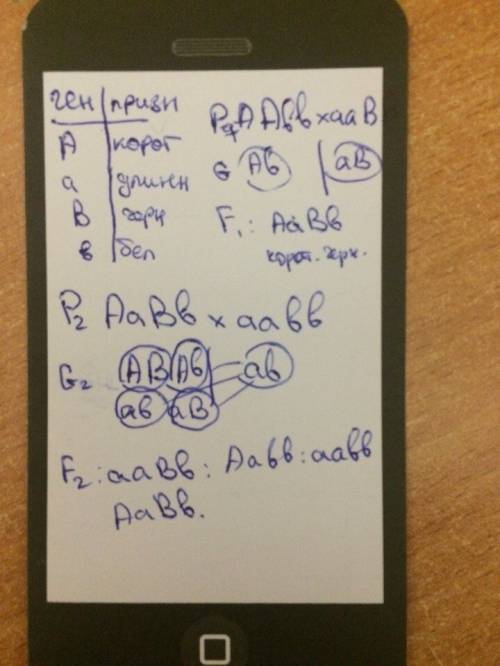 ген признак
А корот
а длинн
В черн
в бел
Р ♀ААвв х ааВ
G Ав аВ
F₁: АаВв
корот. черн.
Р₂ АаВв х аавв
G₂ АВ Ав ав
ав аВ
F₂: ааВв: Аавв: аавв
АаВв.